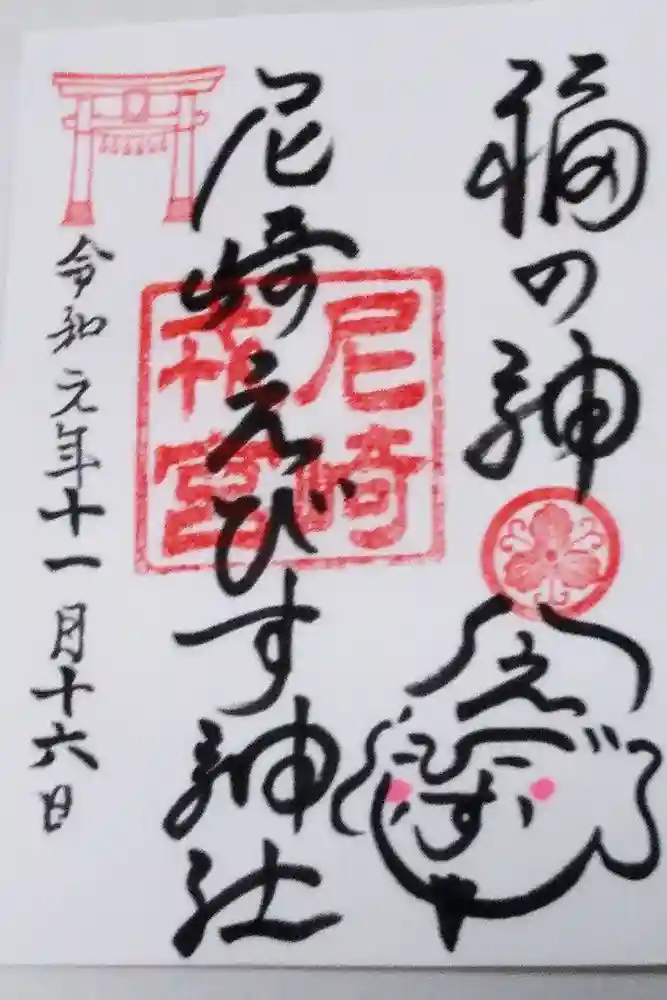 福の神
えびす
尼崎えびす神社
尼崎
戎宮
令和元年十一月十六日